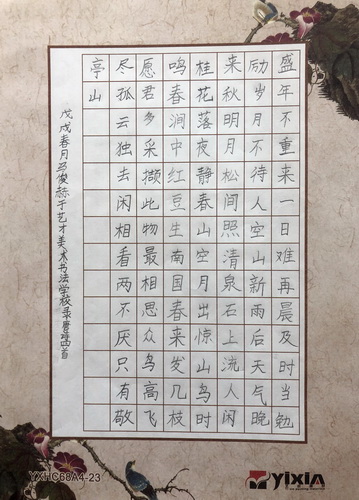 盛年不重来一日难再晨及时当勉
励岁月不待人空山新雨后天气晚
来秋明月松间照清泉石上流人闲
桂花落夜静春山空月出惊山鸟时
鸣春涧中红豆生南国春来发几枝
愿君多采撷此物最相思众鸟高飞
尽孤云独去闲相看两不厌只有敬
亭山
戊戌春月马俊赫于艺才美术书法学校录首
YXHC68A4-23
yixin